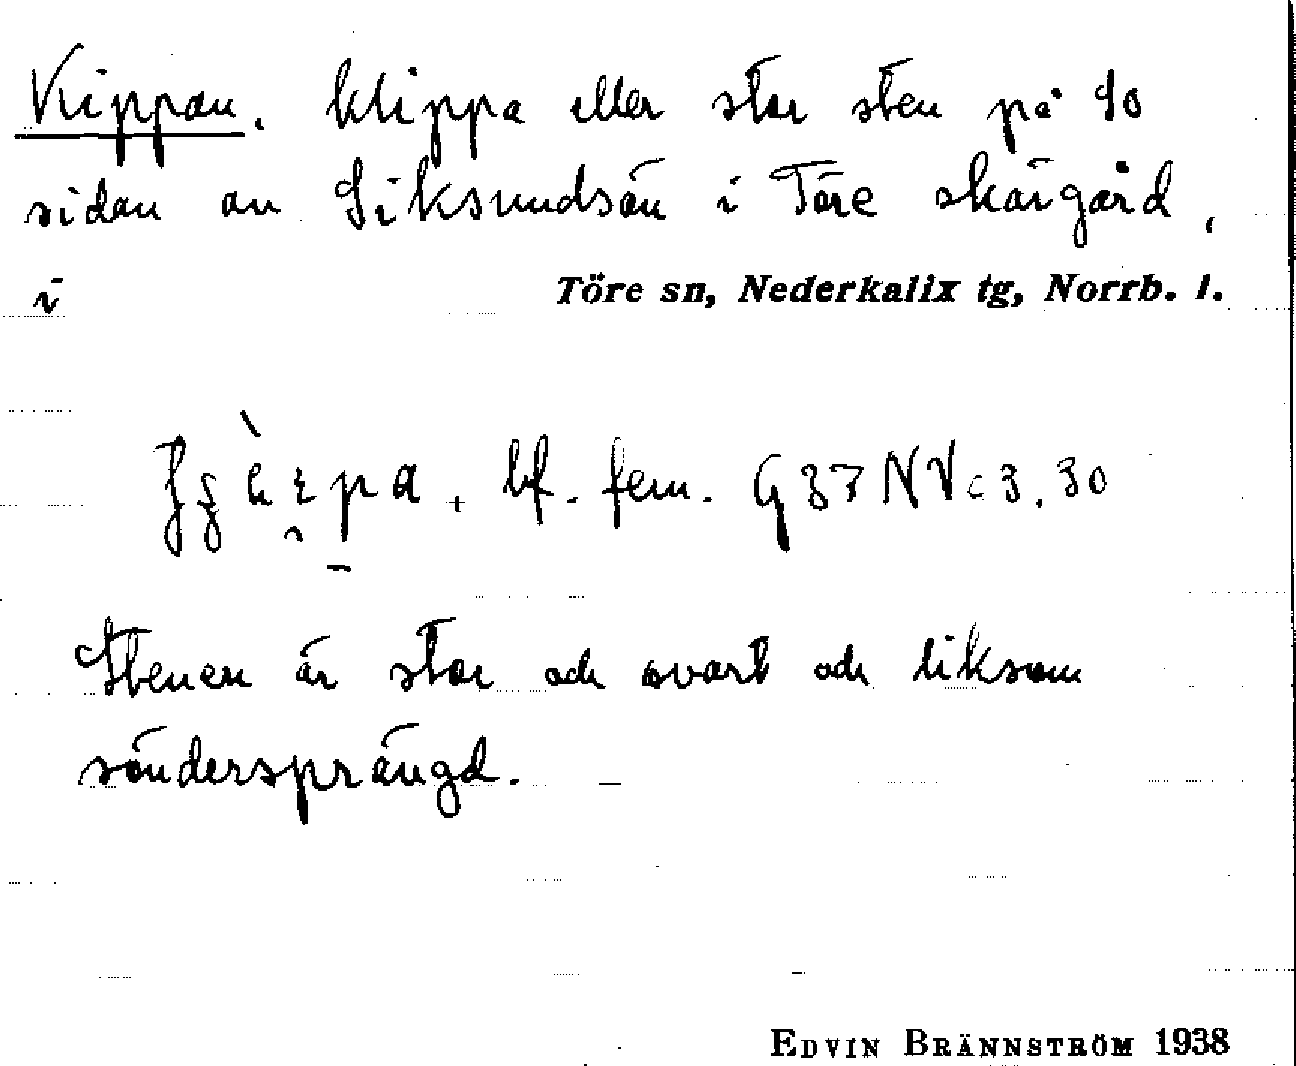 Kippan. klippa eller stor sten på So
sidan av Siksundsön i Töre skärgård,
i Töre sn, Nederkalix tg, Norrb. l.
bf. fem. G 37 NV c 3. 30
Stenen är stor och svart och liksom
söndersprängd.
EDVIN BRÄNNSTRÖM 1938